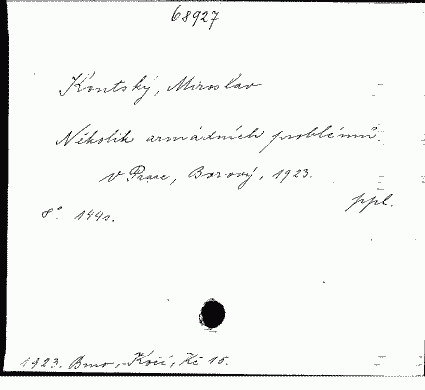 68927
Kontský, Miroslav
Několik armádních problémů.
V Praze, Borový, 1923.
ppl.
8° 149s.
1923. Brno, Kočí, Kč 15.